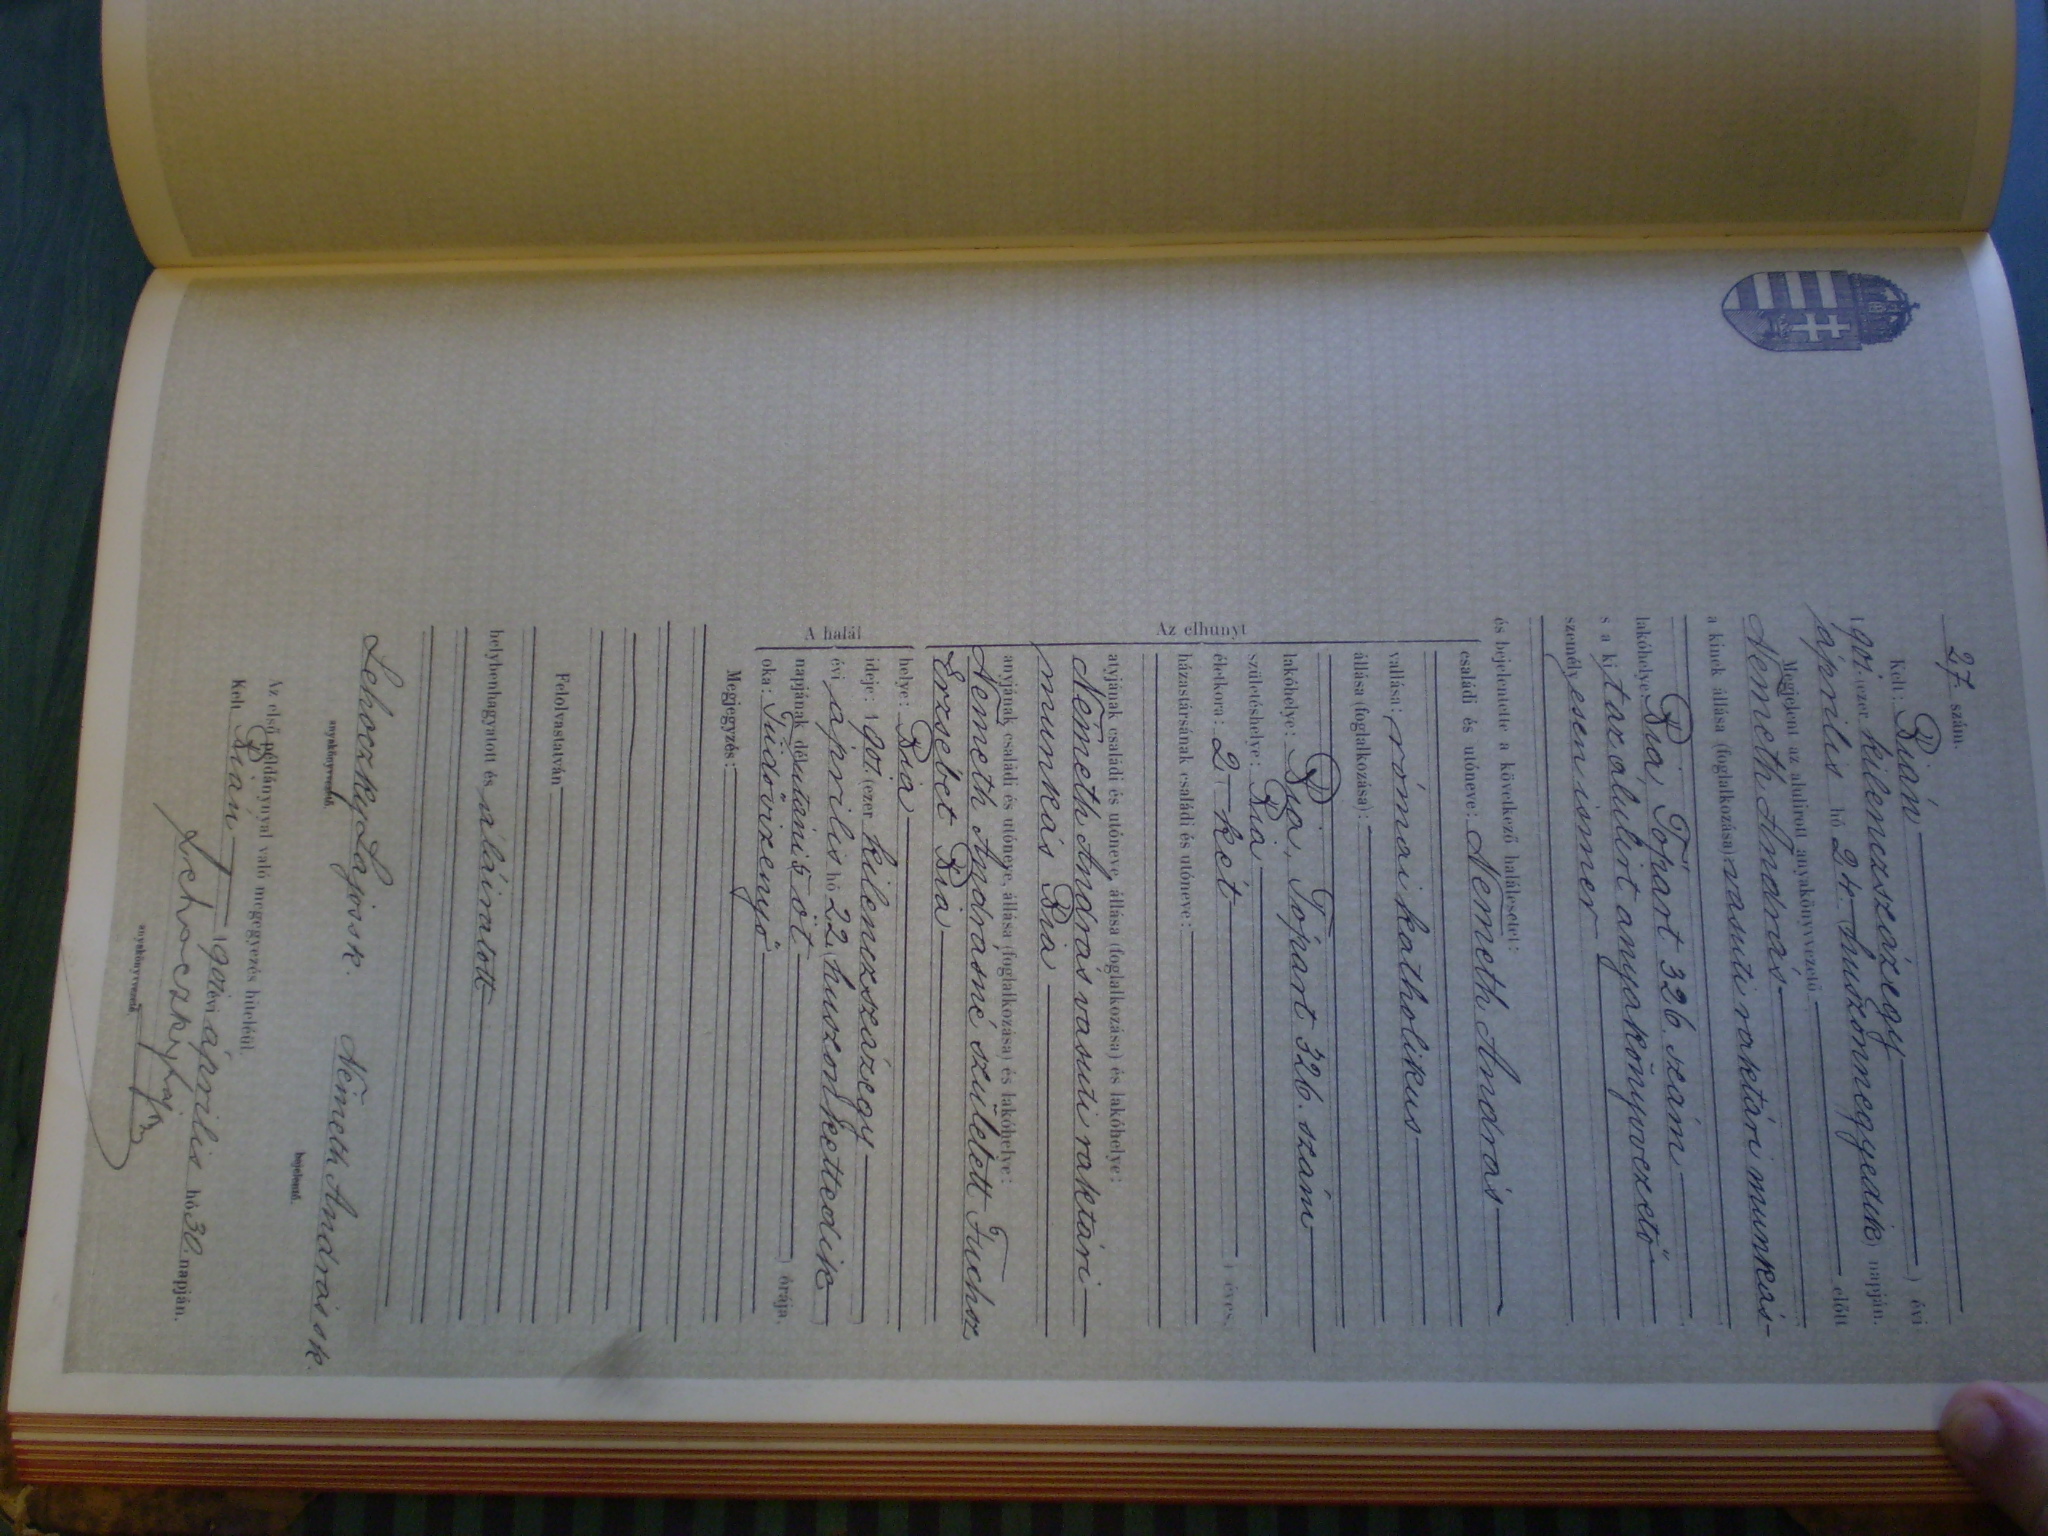 27. szám.
Kelt: Bián ) évi
1901. (ezer kilenczszázegy
április hó 24. (huszonnegyedik) napján.
Megjelent az alulirott anyakönyvvezető előtt
Németh András
a kinek állása (foglalkozása): vasuti raktári munkás
lakóhelye Bia, Tópart 326. szám
s a kit az alulirt anyakönyvvezető
személyesen ismer
és bejelentette a következő halálesetet:
Az elhunyt
családi és utóneve: Németh András
vallása: római katholikus
állása (foglalkozása):
lakóhelye: Bia, Tópart 326. szám
születéshelye: Bia
életkora: 2 - két ) éves.
házastársának családi és utóneve:
atyjának családi és utóneve, állása (foglalkozása) és lakóhelye:
Németh András vasuti raktári
munkás Bia
anyjának családi és utóneve, állása (foglalkozása) és lakóhelye:
Németh Andrásné született Fuchsz
Erzsébet Bia
A halál
helye: Bia
ideje: 1901. (ezer kilenczszázegy )
évi április hó 22. (huszonkettedik )
napjának délutáni 5 öt ) órája.
oka: Tüdővizenyő
Megjegyzés:
Felolvastatván
helybenhagyatott és aláiratott
Lehoczky Lajos sk. Németh András sk.
anyakönyvvezető. bejelentő.
Az első példánynyal való megegyezés hiteléül
Kelt Bián 1901 évi április hó 30. napján.
Lehoczky Lajos
anyakönyvvezető.